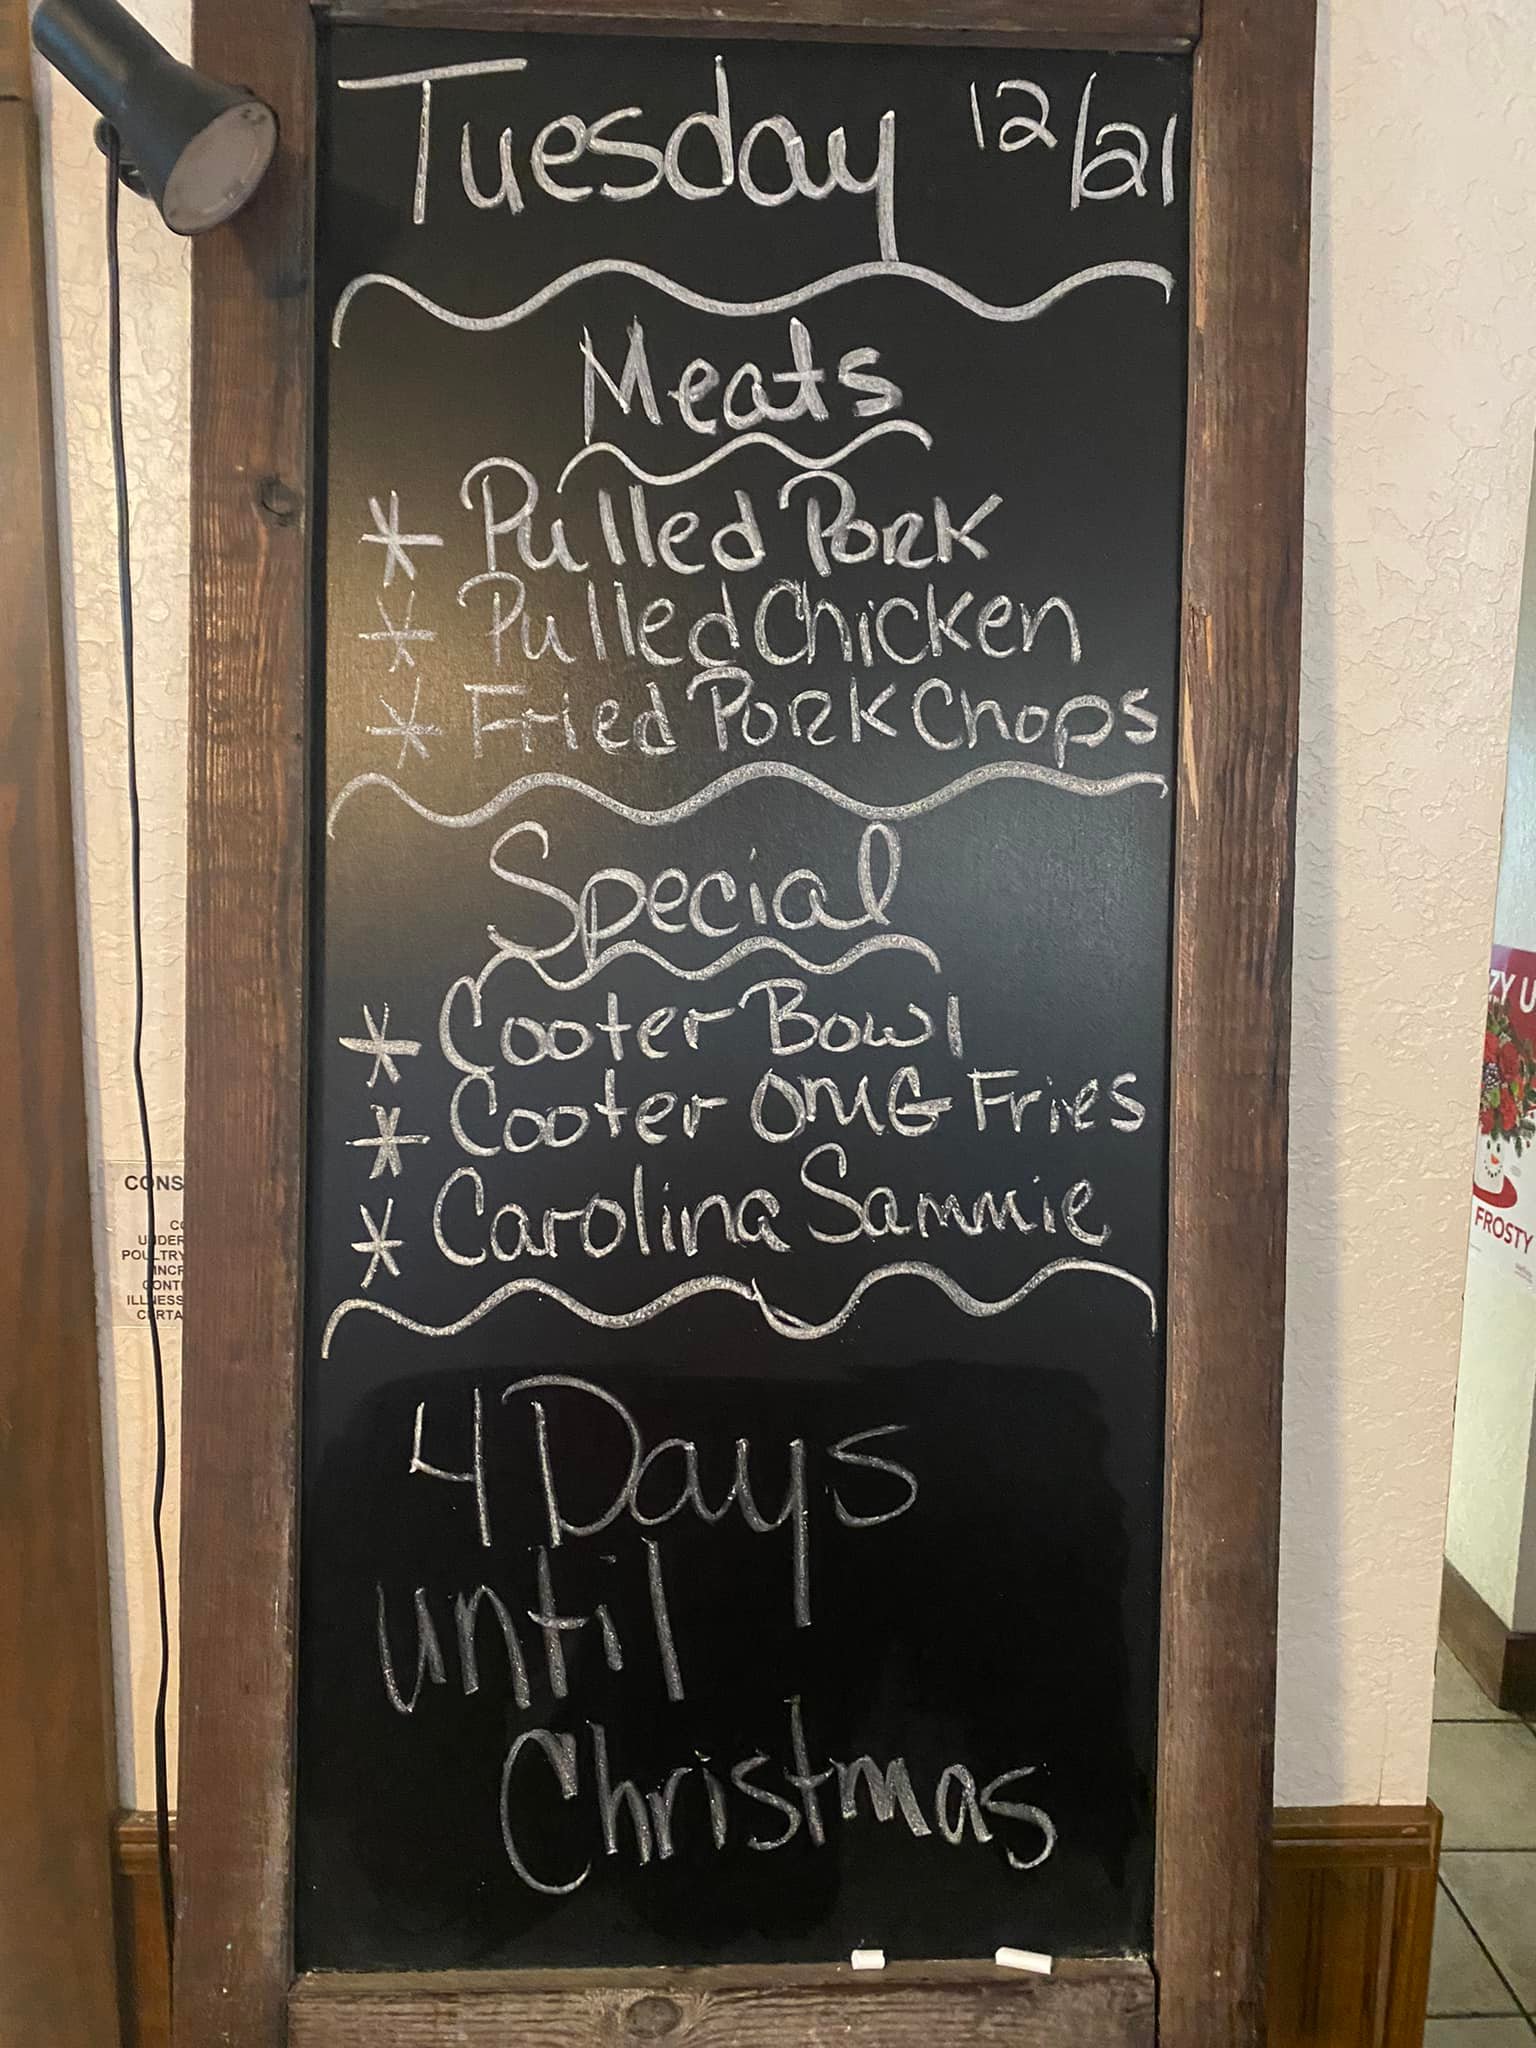 Tuesday 12/21
Meats
* Pulled Pork
* Pulled Chicken
* Fried Pork Chops
Special
* Cooter Bowl
* Cooter OMG Fries
* Carolina Sammie
4 Days
until
Christmas
CONS
CO
UNDER
POULTRY
INCR
CONT
ILLNESS
CERTA
ZY U
FROSTY